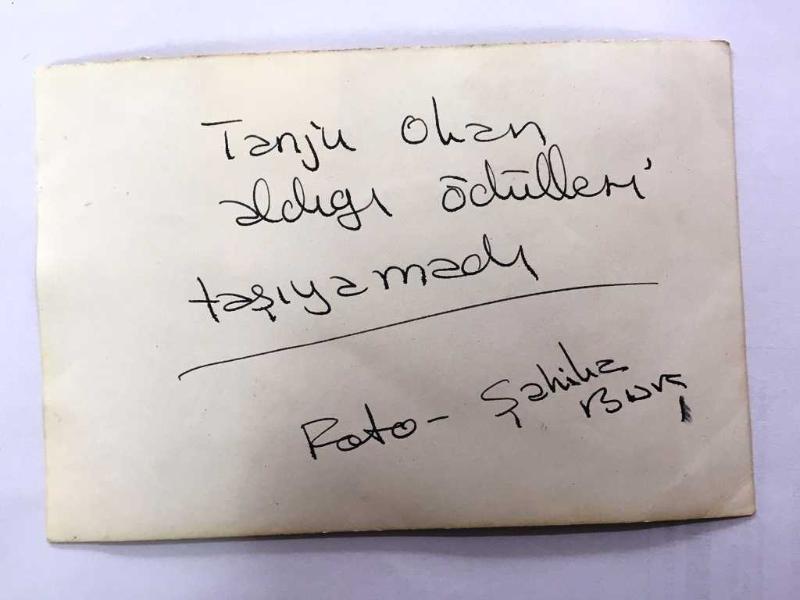 Tanju Okan
aldığı ödülleri
taşıyamadı
Foto- Şahika
Burç